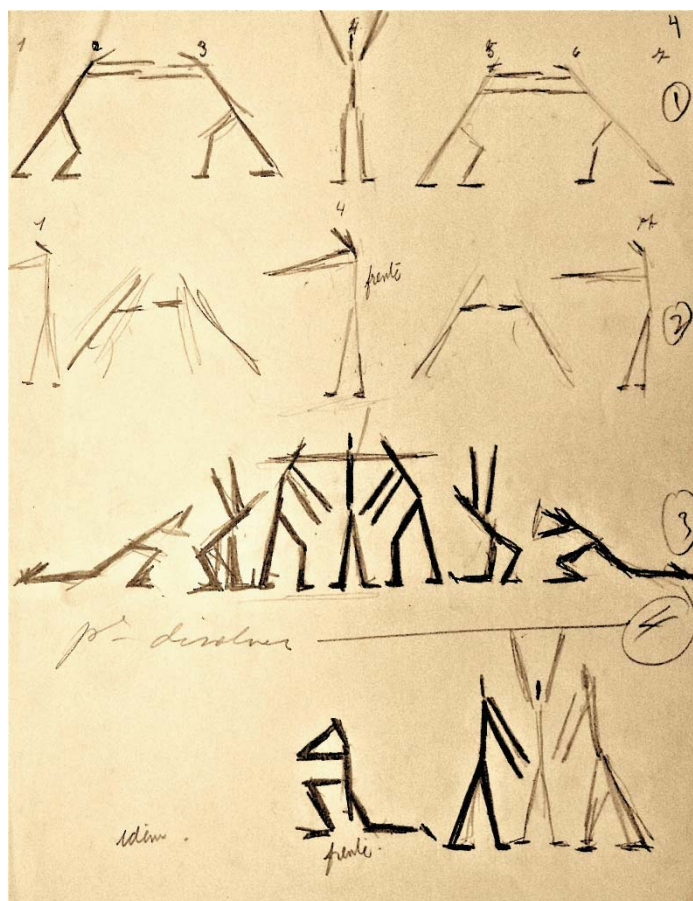 4
1 2 3 4 5 6 7
1
1 4 7
frente
2
3
pª dissolver 4
idem.
frente.